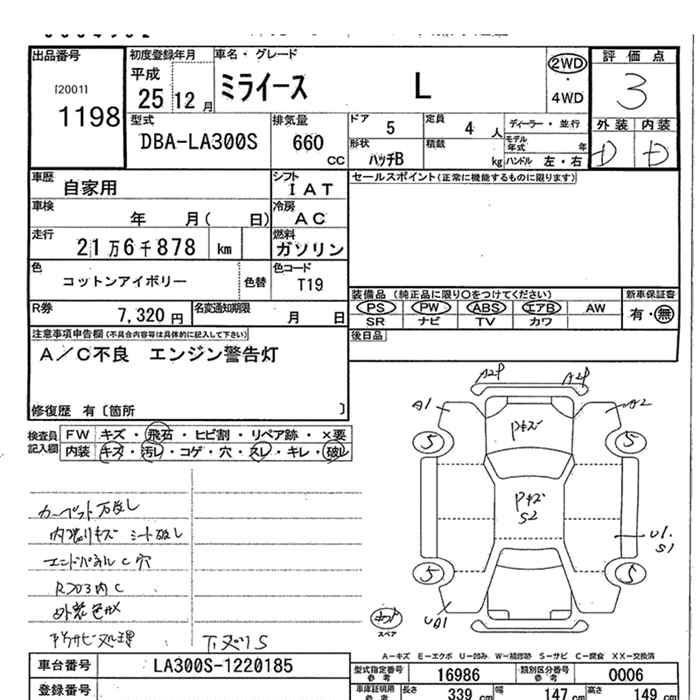 出品番号
[2001]
1198
初度登録年月
平成
25 12 月
車名・グレード
ミライース L
2WD
・
4WD
評価点
3
外装 内装
D D
型式
DBA-LA300S
排気量
660
CC
ドア 5
定員 4 人
ディーラー・並行
モデル年式 年
形状
ハッチB
積載 kg
ハンドル 左・右
車歴 自家用
シフト
IAT
セールスポイント(正常に機能するものに限ります)
車検 年 月( 日)
冷房
AC
走行 21万6千878 km
燃料
ガソリン
色 コットンアイボリー
色替
色コード
T19
装備品 (純正品に限り○をつけてください)
新車保証書
PS PW ABS エアB AW
有・無
SR ナビ TV カワ
R券 7,320 円
名変通知期限 月 日
後日品
注意事項申告欄(不具合内容等は具体的に記入して下さい)
A/C不良 エンジン警告灯
修復歴 有〔箇所 〕
検査員記入欄
FW キズ・飛石・ヒビ割・リペア跡・×要
内装 キズ・汚レ・コゲ・穴・スレ・キレ・破レ
A2P A2P
A1 A2
Pキズ
5 5
Pキズ
S2
U1.
S1
5 5
UA1
スペア
内張りキズ シート破レ
エンドパネルC穴
外装色ボケ
下サビ処理
下ヌリS
A-キズ E-エクボ U-凹み W-補修跡 S-サビ C-腐食 XX-交換済
車台番号 LA300S-1220185
型式指定番号
参考
16986
類別区分番号
参考
0006
登録番号
車庫証明用
参考
長さ 339 cm
幅 147 cm
高さ 149 cm